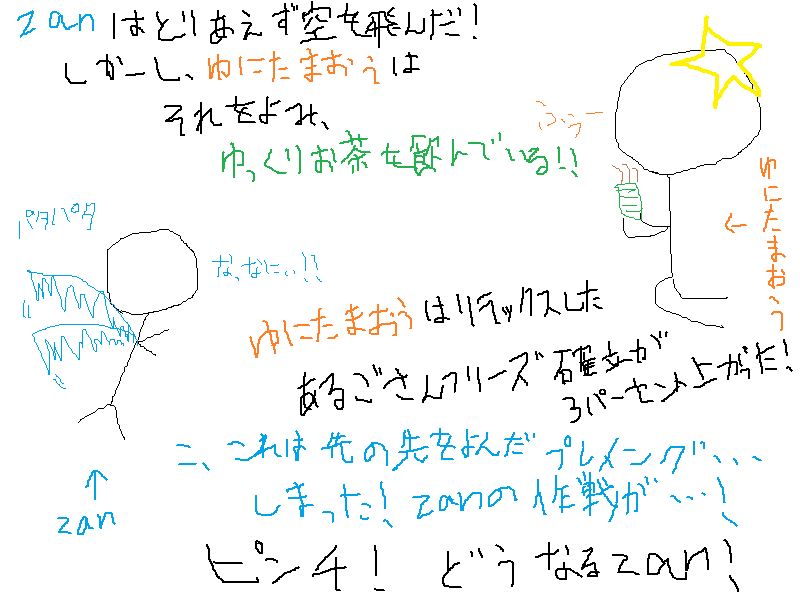 zanはとりあえず空を飛んだ!
しかーし、ゆにたまおうは
それをよみ、
ゆっくりお茶を飲んでいる!!
ふぅー
ゆにたまおう
←
パタパタ
なっなにぃ!!
ゆにたまおうはリラックスした
あるごさんフリーズ確立が
3パーセント上がった!
こ、これは先の先をよんだプレメング、、、
しまった!zanの作戦が…!
↑
zan
ピンチ! どうなるzan!